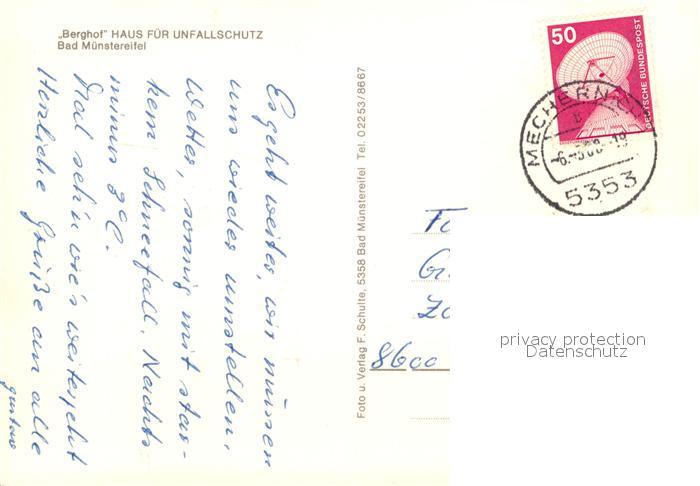 „Berghof" HAUS FÜR UNFALLSCHUTZ
Bad Münstereifel
Es geht weiter, wir müssen
uns wieder umstellen.
Wetter, sonnig mit star-
kem Schneefall. Nachts
minus 3°C.
Mal seh'n wie's weitergeht
Herzliche Grüße an alle
Gustav
Foto u. Verlag F. Schulte, 5358 Bad Münstereifel Tel. 02253/8667
50
DEUTSCHE BUNDESPOST
MECHERNICH
5353
8600
privacy protection
Datenschutz